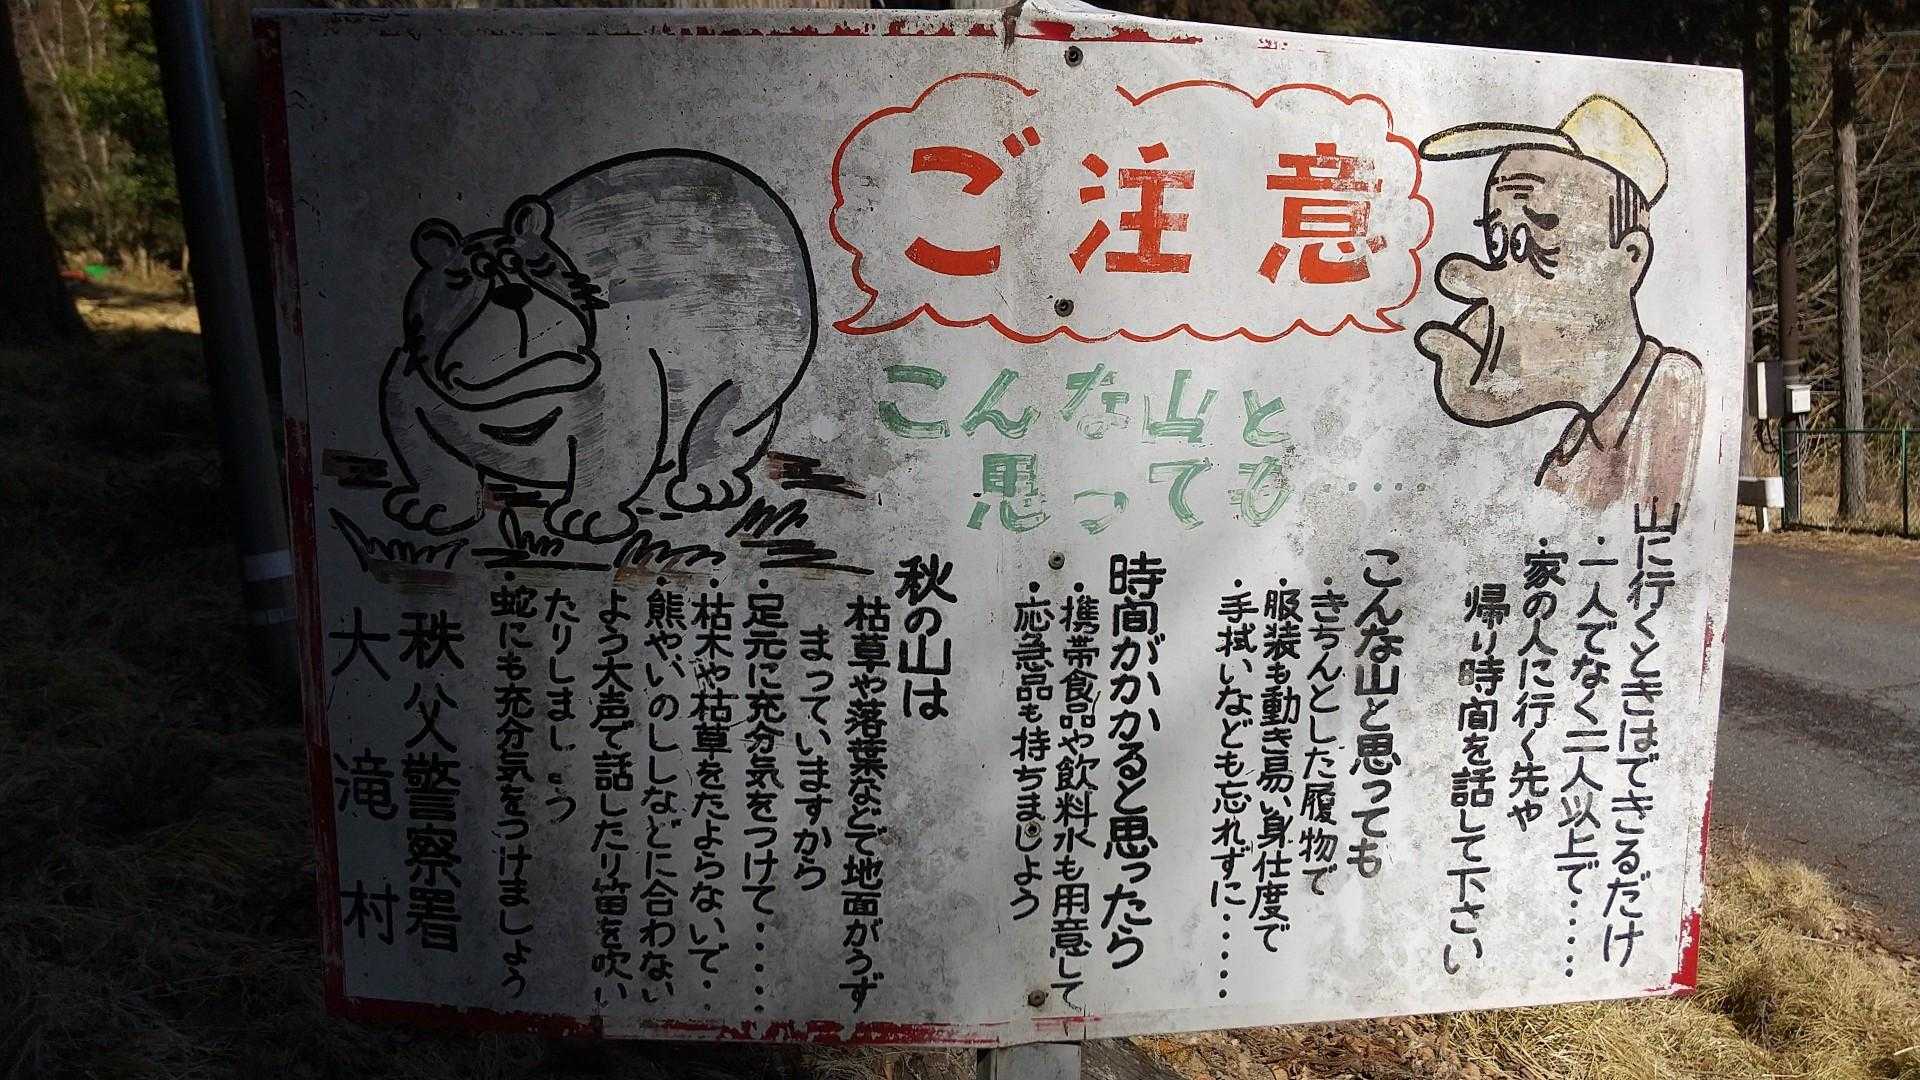 ご注意
こんな山と
思っても.....
山に行くときはできるだけ
・一人でなく二人以上で・・・・・
・家の人に行く先や
帰り時間を話して下さい
こんな山と思っても
・きちんとした履物で
・服装も動き易い身仕度で
・手拭いなども忘れずに・・・・
時間がかかると思ったら
・携帯食品や飲料水も用意して
・応急品も持ちましよう
秋の山は
枯草や落葉などで地面がうず
まっていますから
・足元に充分気をつけて・・・・・
・枯木や枯草をたよらないで・・
・熊やいのししなどに合わない
よう大声で話したり笛を吹い
たりしましよう
・蛇にも充分気をつけましよう
秩父警察署
大滝村